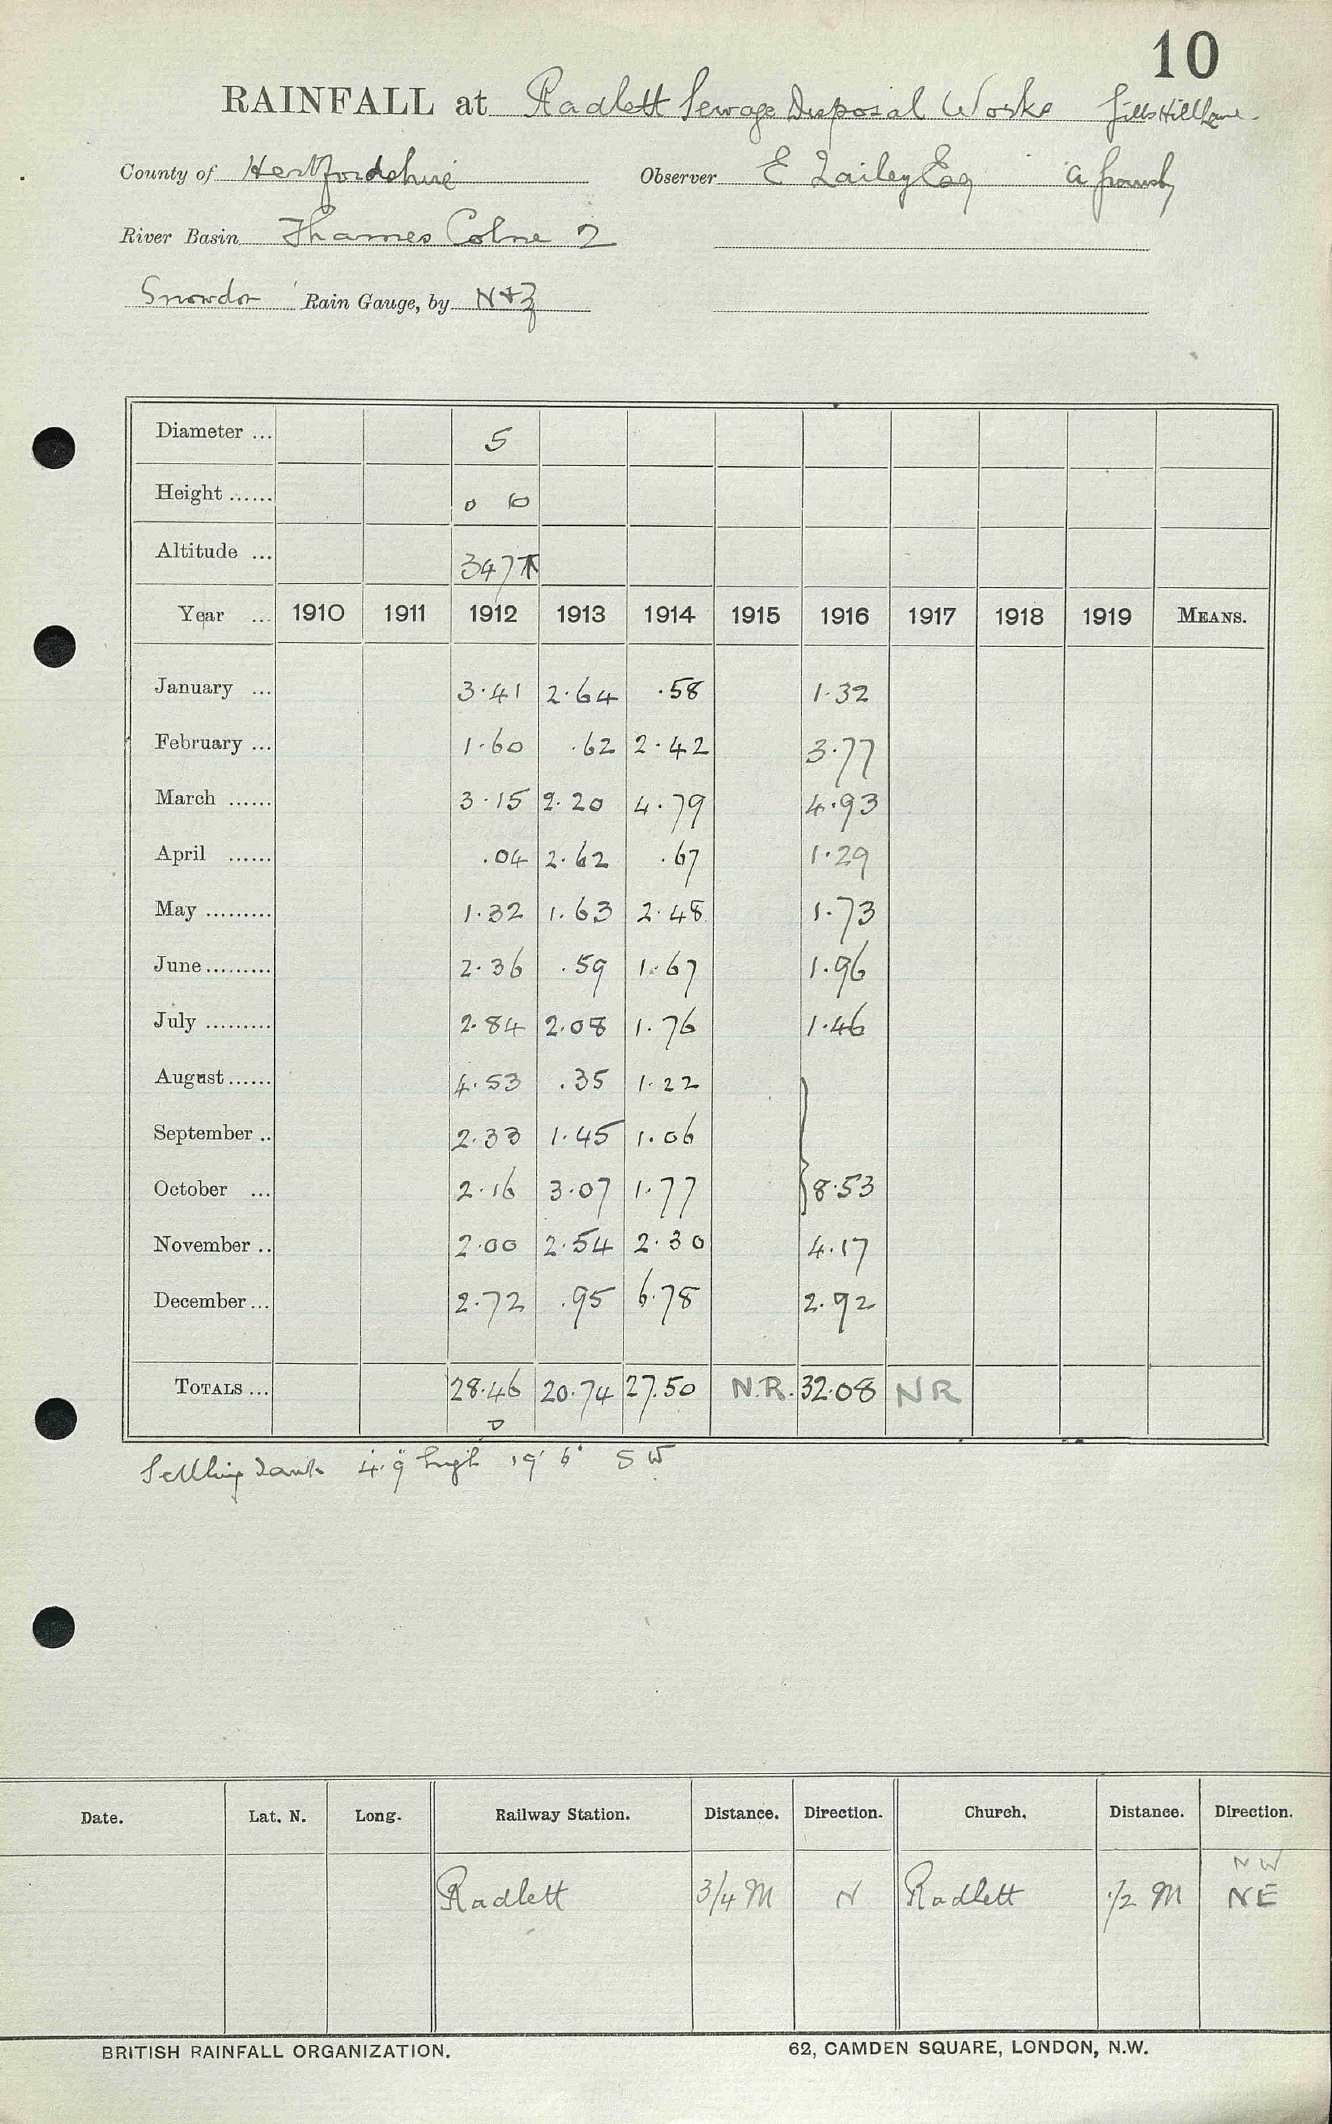 10
RAINFALL at Radlett Sewage Disposal Works Gills Hill Lane
County of Hertfordshire Observer E Lailey Esq
River Basin Thames Colne 2
Snowdon Rain Gauge, by N+Z
Diameter ... 5
Height ...... 0 10
Altitude ... 347
Year ... 1910 1911 1912 1913 1914 1915 1916 1917 1918 1919 MEANS.
January ... 3.41 2.64 .58 1.32
February ... 1.60 .62 2.42 3.77
March ...... 3.15 2.20 4.79 4.93
April ...... .04 2.62 .67 1.29
May ......... 1.32 1.63 2.48 1.73
June ......... 2.36 .59 1.67 1.96
July ......... 2.84 2.08 1.76 1.46
August ...... 4.53 .35 1.22
September .. 2.33 1.45 1.06
October ... 2.16 3.07 1.77 8.53
November .. 2.00 2.54 2.30 4.17
December ... 2.72 .95 6.78 2.92
TOTALS ... 28.46 20.74 27.50 N.R. 32.08 NR
Settling Tank 4'9" high 19' 6" SW
Date. Lat. N. Long. Railway Station. Distance. Direction. Church. Distance. Direction.
NW
Radlett 3/4 M N Radlett 1/2 M NE
BRITISH RAINFALL ORGANIZATION. 62, CAMDEN SQUARE, LONDON, N.W.